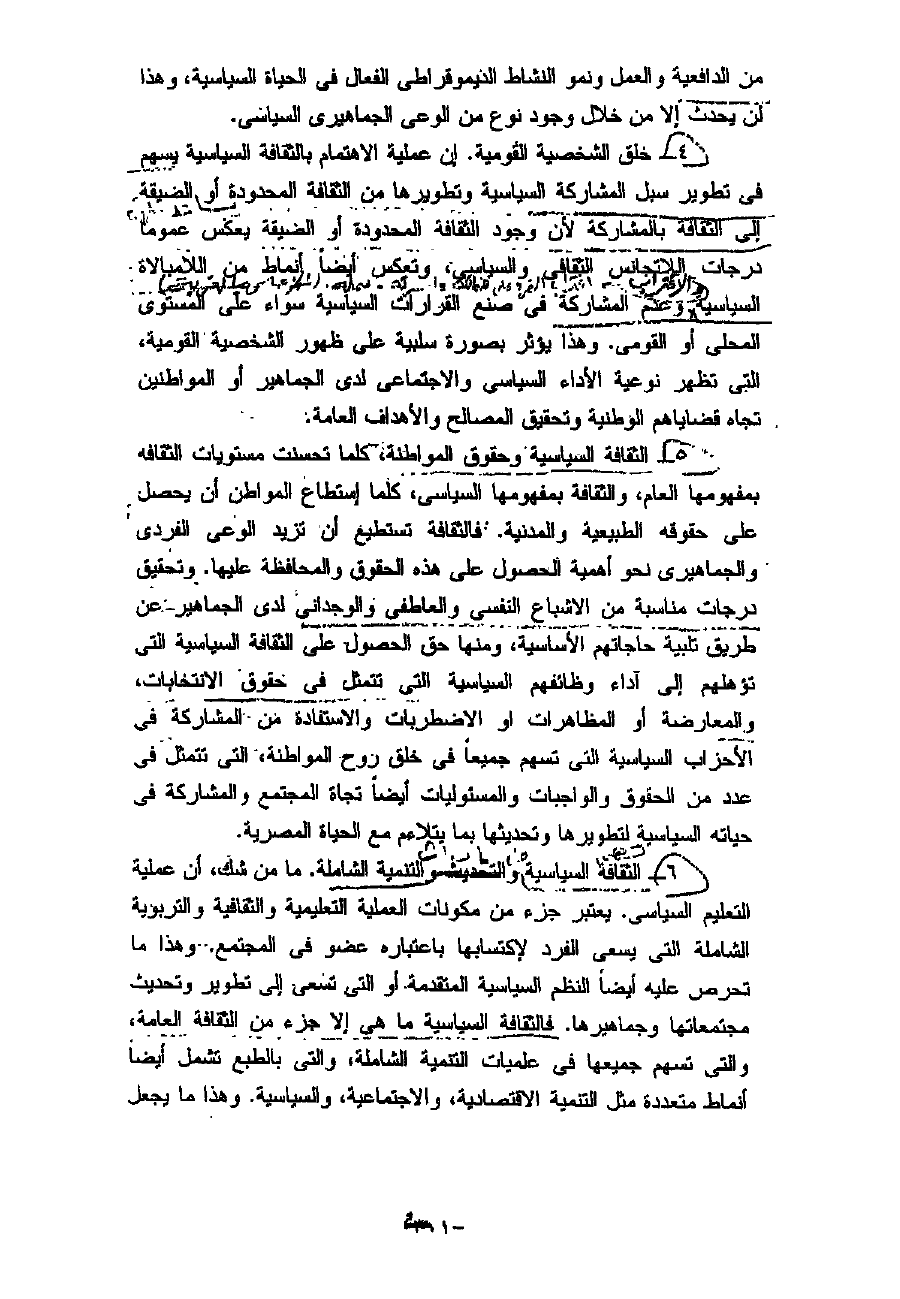 من الدافعية والعمل ونمو النشاط الديموقراطى الفعال فى الحياة السياسية، وهذا
لن يحدث إلا من خلال وجود نوع من الوعى الجماهيرى السياسى.
٤ـ خلق الشخصية القومية. إن عملية الاهتمام بالثقافة السياسية يسهم
فى تطوير سبل المشاركة السياسية وتطويرها من الثقافة المحدودة أو الضيقة
إلى الثقافة بالمشاركة لأن وجود الثقافة المحدودة أو الضيقة يعكس عموماً
درجات اللاتجانس الثقافى والسياسى، وتعكس أيضاً أنماط من اللامبالاة
والاغتراب
السياسية وعدم المشاركة فى صنع القرارات السياسية سواء على المستوى
المحلى أو القومى. وهذا يؤثر بصورة سلبية على ظهور الشخصية القومية،
التى تظهر نوعية الأداء السياسى والاجتماعى لدى الجماهير أو المواطنين
تجاه قضاياهم الوطنية وتحقيق المصالح والأهداف العامة.
٥ـ الثقافة السياسية وحقوق المواطنة، كلما تحسنت مستويات الثقافه
بمفهومها العام، والثقافة بمفهومها السياسى، كلما إستطاع المواطن أن يحصل
على حقوقه الطبيعية والمدنية. فالثقافة تستطيع أن تزيد الوعى الفردى
والجماهيرى نحو أهمية الحصول على هذه الحقوق والمحافظة عليها. وتحقيق
درجات مناسبة من الاشباع النفسى والعاطفى والوجدانى لدى الجماهير عن
طريق تلبية حاجاتهم الأساسية، ومنها حق الحصول على الثقافة السياسية التى
تؤهلهم إلى آداء وظائفهم السياسية التى تتمثل فى حقوق الانتخابات،
والمعارضة أو المظاهرات او الاضطربات والاستفادة من المشاركة فى
الأحزاب السياسية التى تسهم جميعاً فى خلق روح المواطنة، التى تتمثل فى
عدد من الحقوق والواجبات والمسئوليات أيضاً تجاة المجتمع والمشاركة فى
حياته السياسية لتطويرها وتحديثها بما يتلاءم مع الحياة المصرية.
٦ـ الثقافة السياسية والتحديث والتنمية الشاملة. ما من شك، أن عملية
التعليم السياسى. يعتبر جزء من مكونات العملية التعليمية والثقافية والتربوية
الشاملة التى يسعى الفرد لإكتسابها باعتباره عضو فى المجتمع. وهذا ما
تحرص عليه أيضاً النظم السياسية المتقدمة أو التى تسعى إلى تطوير وتحديث
مجتمعاتها وجماهيرها. فالثقافة السياسية ما هى إلا جزء من الثقافة العامة،
والتى تسهم جميعها فى علميات التنمية الشاملة، والتى بالطبع تشمل أيضاً
أنماط متعددة مثل التنمية الاقتصادية، والاجتماعية، والسياسية. وهذا ما يجعل